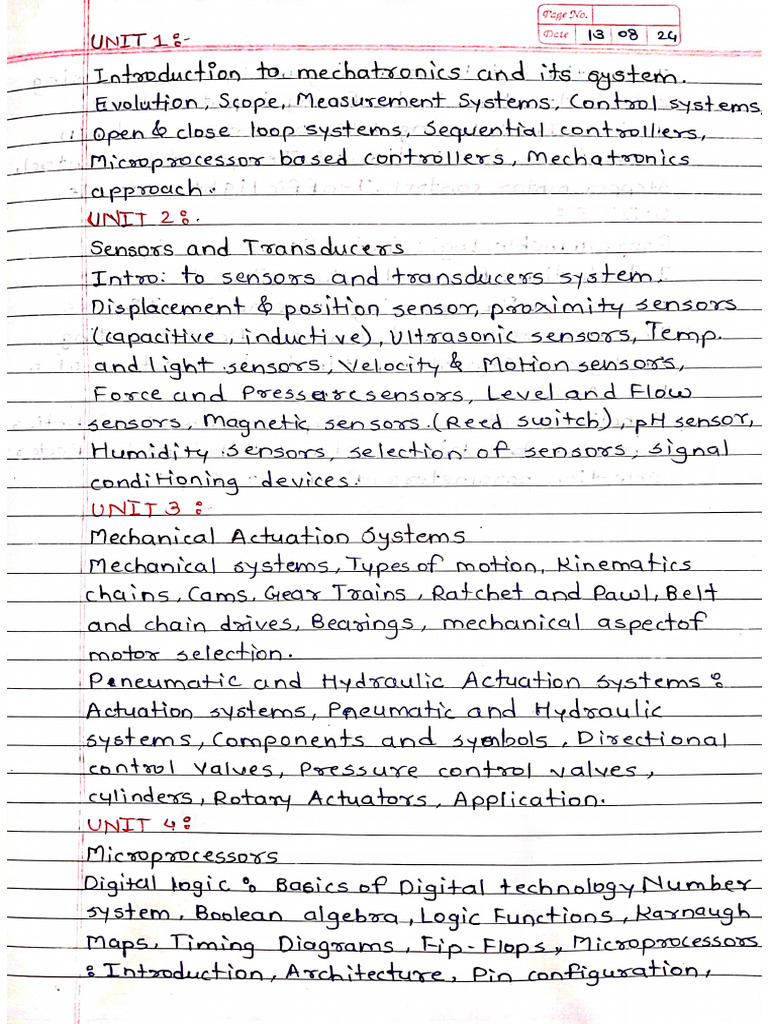 Page No.
Date 13 08 24
UNIT 1:-
Introduction to mechatronics and its system.
Evolution, Scope, Measurement Systems, Control systems,
Open & close loop systems, Sequential controllers,
Microprocessor based controllers, Mechatronics
approach.
UNIT 2:.
Sensors and Transducers
Intro: to sensors and transducers system.
Displacement & position sensor, proximity sensors
(capacitive, inductive), Ultrasonic sensors, Temp.
and light sensors, Velocity & Motion sensors,
Force and Pressure sensors, Level and Flow
sensors, Magnetic sensors.(Reed switch), pH sensor,
Humidity sensors, selection of sensors, signal
conditioning devices.
UNIT 3:-
Mechanical Actuation Systems
Mechanical systems, Types of motion, Kinematics
chains, Cams. Gear Trains, Ratchet and Pawl, Belt
and chain drives, Bearings, mechanical aspect of
motor selection.
Pneumatic and Hydraulic Actuation systems:
Actuation systems, Pneumatic and Hydraulic
systems, Components and symbols, Directional
control valves, Pressure control valves,
cylinders, Rotary Actuators, Application.
UNIT 4:
Microprocessors
Digital logic: Basics of Digital technology Number
system, Boolean algebra, Logic Functions, Karnaugh
Maps, Timing Diagrams, Fip-Flops, Microprocessors
: Introduction, Architecture, Pin configuration,